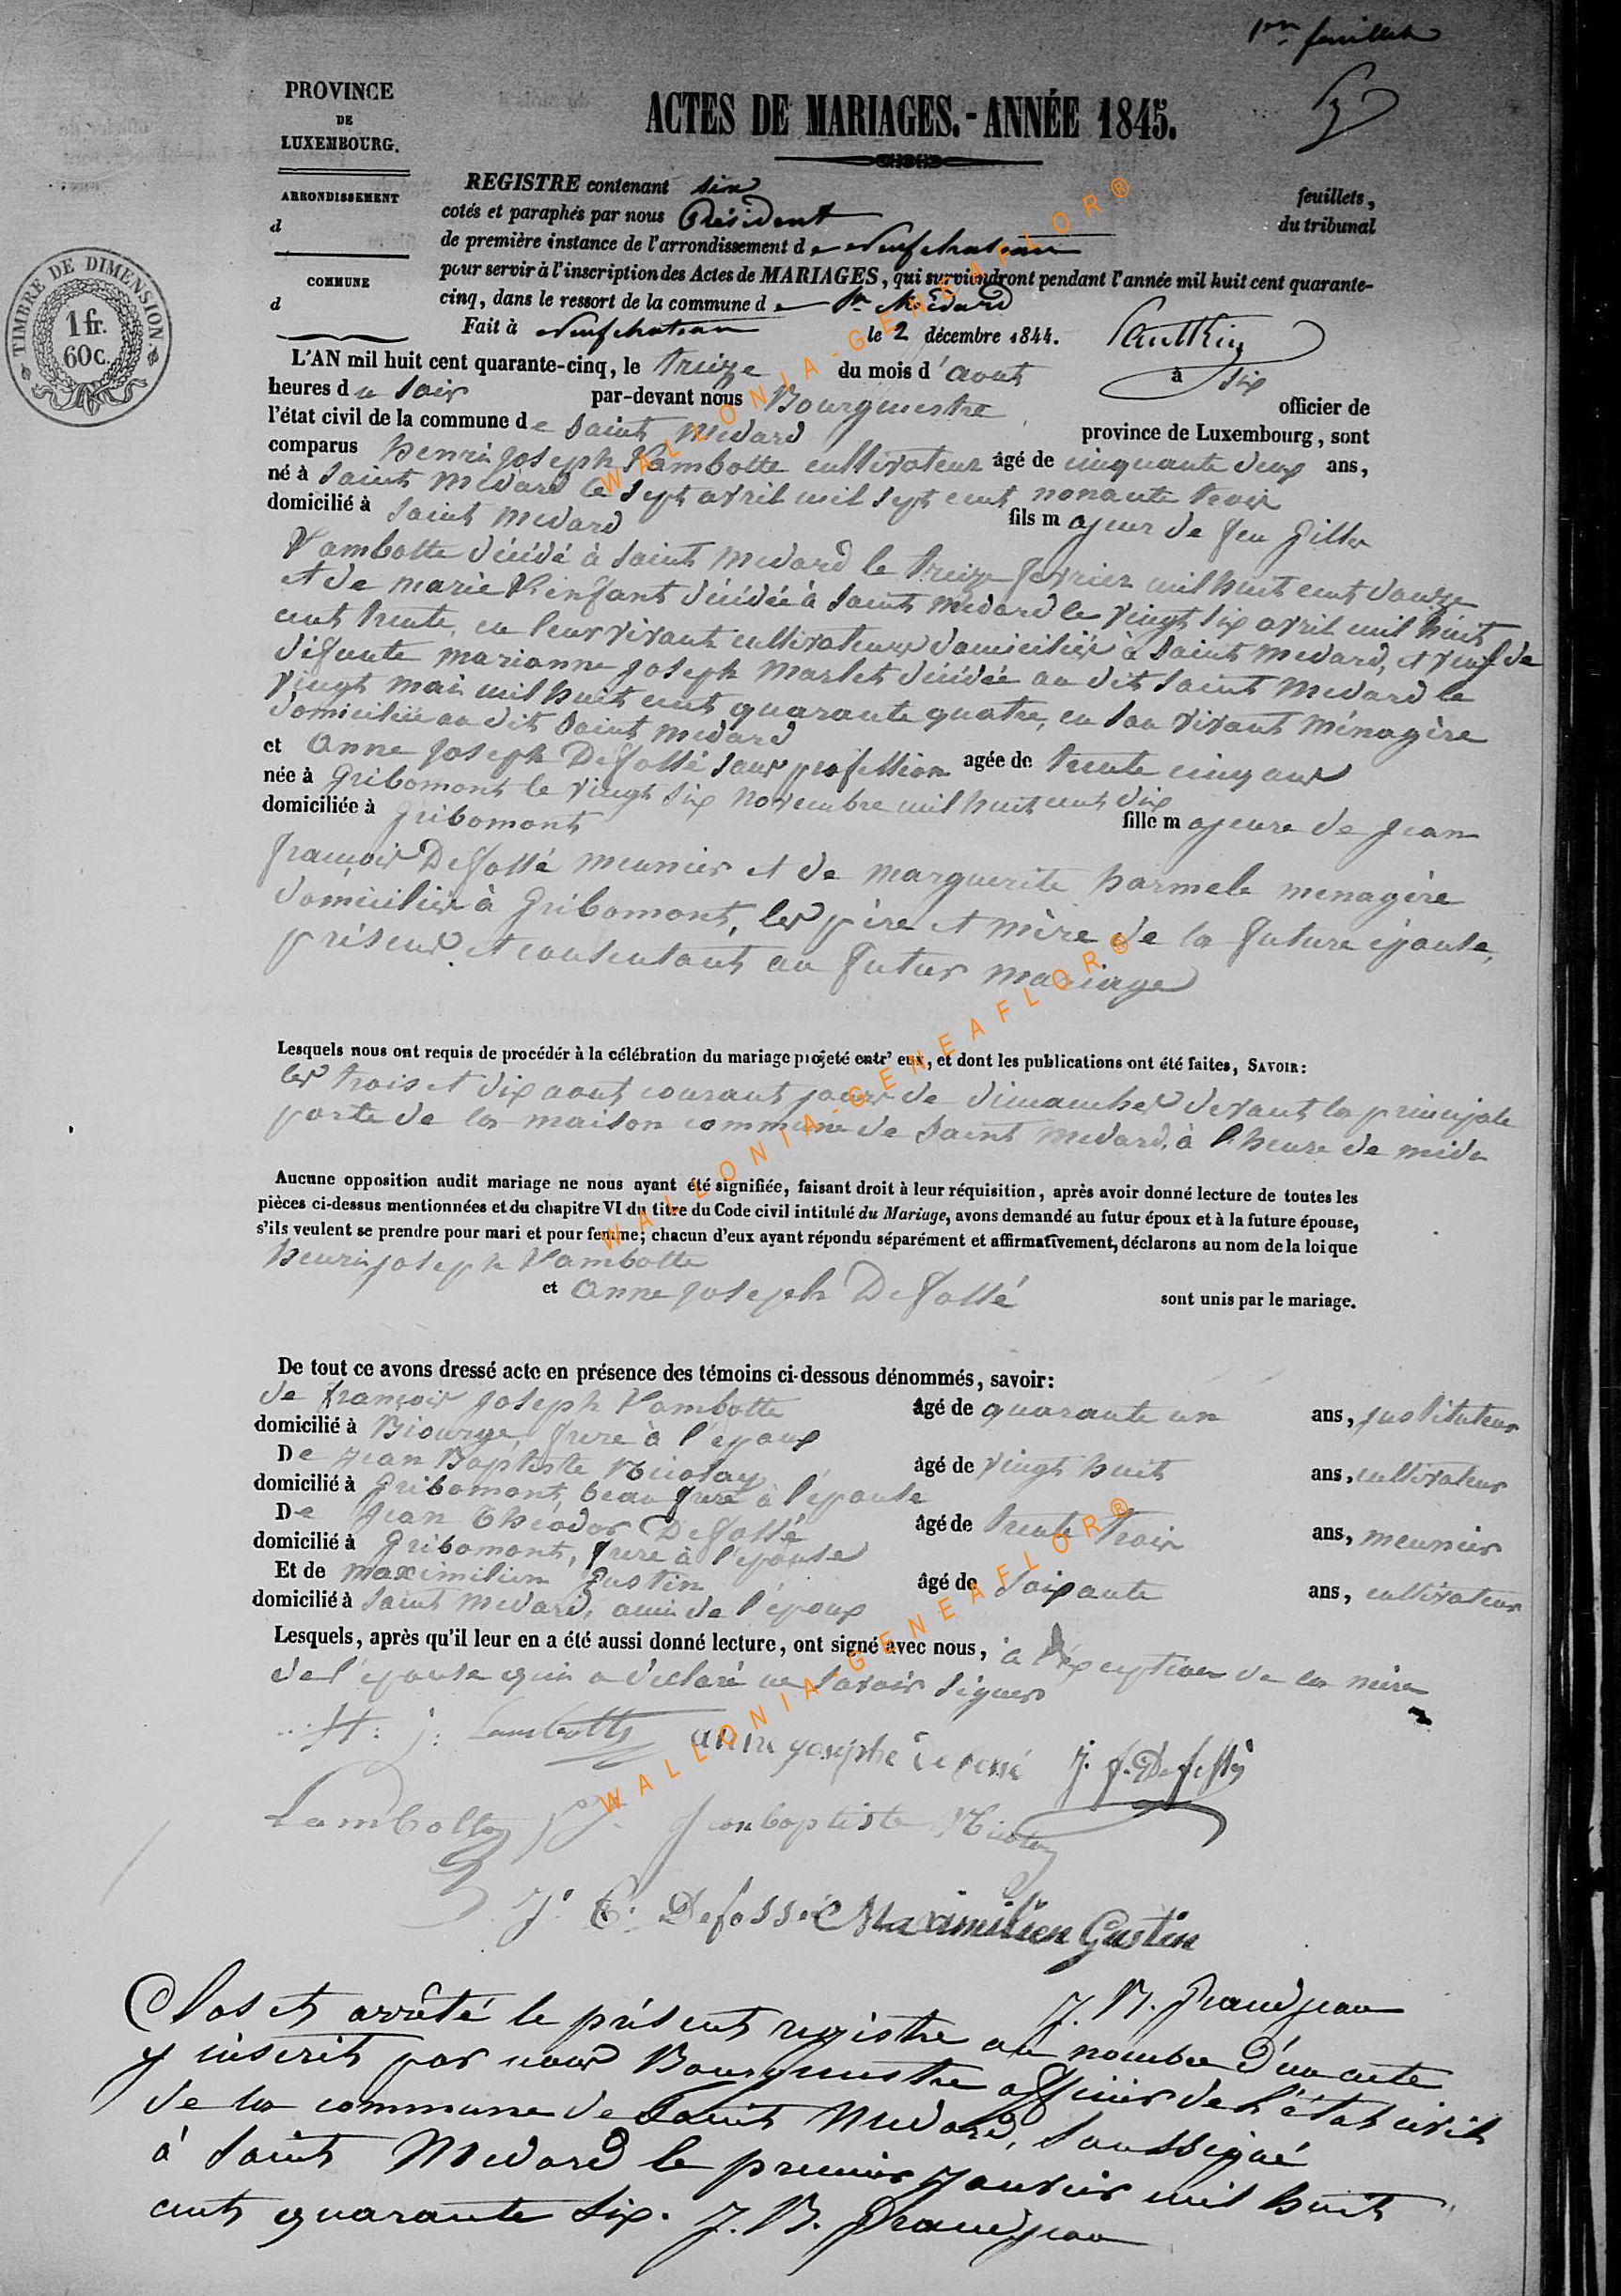 1er feuillet
PROVINCE
DE
LUXEMBOURG.
ACTES DE MARIAGES.-ANNÉE 1845.
ARRONDISSEMENT
d
COMMUNE
d
TIMBRE DE DIMENSION.
1 fr.
60 c.
REGISTRE contenant six feuillets,
cotés et paraphés par nous Président du tribunal
de première instance de l'arrondissement de Neufchateau
pour servir à l'inscription des Actes de MARIAGES, qui surviendront pendant l'année mil huit cent quarante-
cinq, dans le ressort de la commune de St Médard
Fait à Neufchateau le 2 décembre 1844.
L'AN mil huit cent quarante-cinq, le treize du mois d'aout à six
heures du soir par-devant nous Bourgmestre officier de
l'état civil de la commune de Saint Medard province de Luxembourg, sont
comparus henri joseph Lambotte cultivateur âgé de cinquante deux ans,
né à Saint Médard le sept avril mil sept cent nonante trois
domicilié à Saint Medard fils majeur de feu Gille
Lambotte décédé à Saint Medard le treize fevrier mil huit cent douze
et de marie Pinfant décédée à Saint Medard le vingt six avril mil huit
cent trente, en leur vivant cultivateurs domiciliés à Saint Medard, et veuf de
défunte marianne joseph Marlet décédée au dit Saint Medard le
vingt mai mil huit cent quarante quatre, en son vivant ménagère
domiciliée au dit Saint Medard
et Anne joseph Defossé sans profession agée de trente cinq ans
née à Gribomont le vingt six novembre mil huit cent dix
domiciliée à Gribomont fille majeure de jean
françois Defossé meunier et de marguerite hormele menagère
domiciliés à Gribomont, les père et mère de la future épouse,
présens et consentant au futur mariage
Lesquels nous ont requis de procédér à la célébration du mariage projeté entr' eux, et dont les publications ont été faites, SAVOIR:
les trois et dix aout courant jours de dimanches devant la principale
porte de la maison commune de Saint Medard, à l'heure de midi
Aucune opposition audit mariage ne nous ayant été signifiée, faisant droit à leur réquisition, après avoir donné lecture de toutes les
pièces ci-dessus mentionnées et du chapitre VI du titre du Code civil intitulé du Mariage, avons demandé au futur époux et à la future épouse,
s'ils veulent se prendre pour mari et pour femme; chacun d'eux ayant répondu séparément et affirmativement, déclarons au nom de la loi que
henri joseph Lambotte
et Anne joseph Defossé sont unis par le mariage.
De tout ce avons dressé acte en présence des témoins ci-dessous dénommés, savoir:
de françois joseph Lambotte âgé de quarante un ans, instituteur
domicilié à Biourge, frere à l'époux
De jean Baptiste Nicolay âgé de vingt huit ans, cultivateur
domicilié à Gribomont, beau frere à l'épouse
De jean théodor Defossé âgé de trente trois ans, meunier
domicilié à Gribomont, frere à l'épouse
Et de maximilien Gustin âgé de soixante ans, cultivateur
domicilié à Saint Medard, ami de l'époux
Lesquels, après qu'il leur en a été aussi donné lecture, ont signé avec nous, à l'exception de la mère
de l'épouse qui a déclaré ne savoir signer
H: j: Lambotte anne yosephe defossé j. f. Defossé
Lambotte f j. jean baptiste Nicolay
J. t. Defossé Maximilien Gustin
J. N. Grandjean
Clos et arrêté le présent registre au nombre d'un acte
y inscrit par nous Bourgmestre officier de l'état civil
de la commune de Saint Medard, soussigné
à Saint Medard le premier janvier mil huit
cent quarante six. J. N. Grandjean
WALLONIA-GENEAFLOR®
WALLONIA-GENEAFLOR®
WALLONIA-GENEAFLOR®